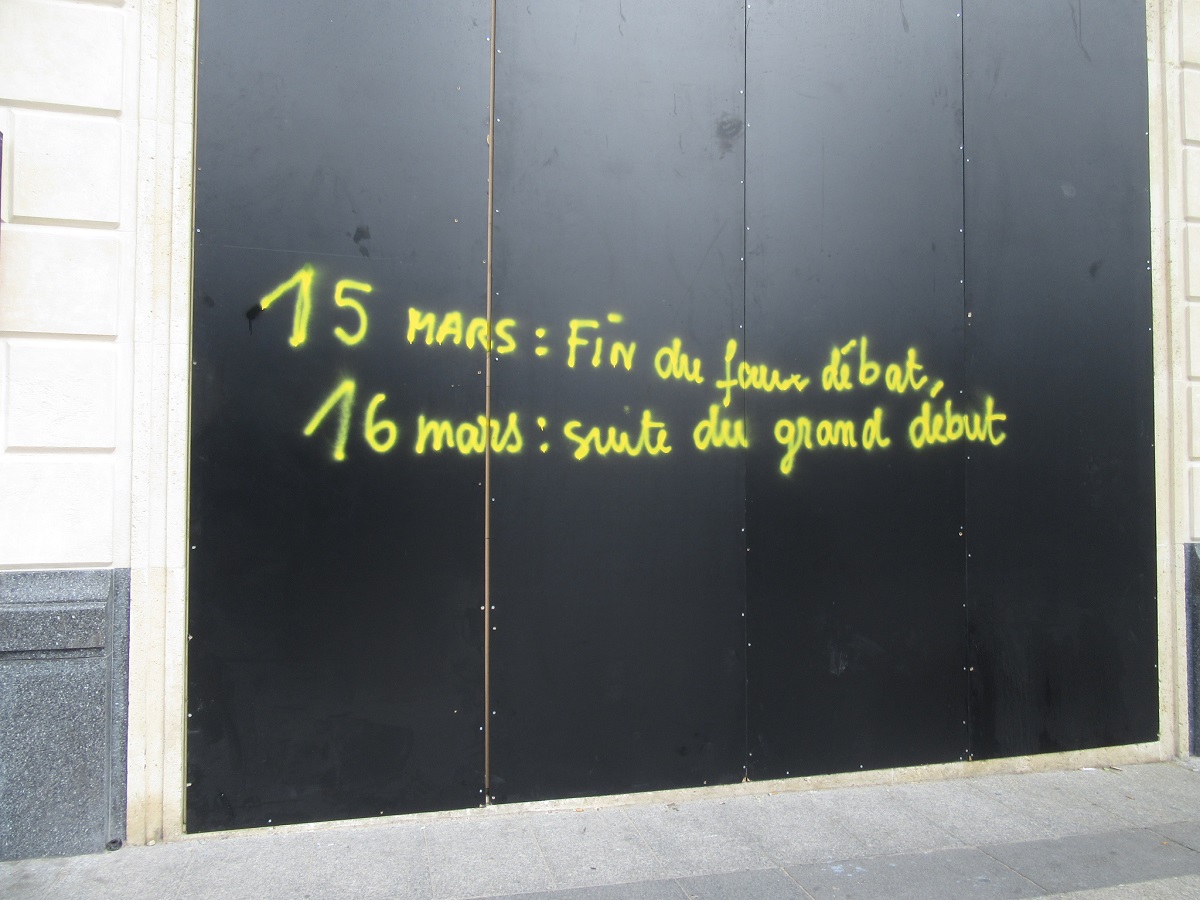 15 MARS : FiN du faux débat,
16 mars : suite du grand début